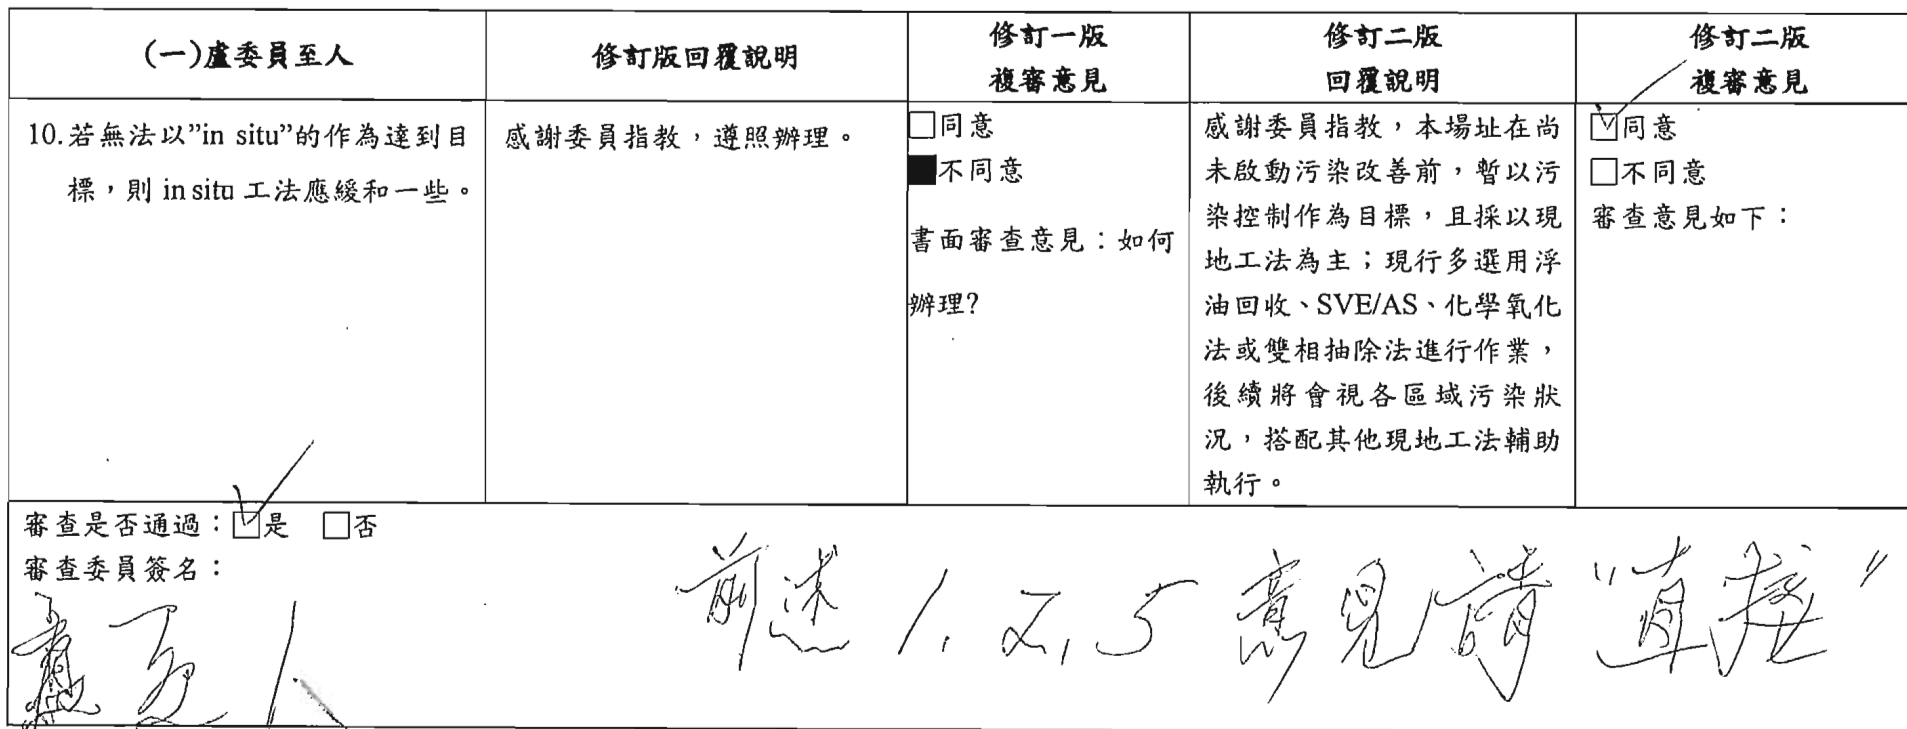 (一)盧委員至人
修訂版回覆說明
修訂一版
複審意見
修訂二版
回覆說明
修訂二版
複審意見
10.若無法以”in situ”的作為達到目
標，則 in situ 工法應緩和一些。
感謝委員指教，遵照辦理。
□同意
■不同意
書面審查意見：如何
辦理?
感謝委員指教，本場址在尚
未啟動污染改善前，暫以污
染控制作為目標，且採以現
地工法為主；現行多選用浮
油回收、SVE/AS、化學氧化
法或雙相抽除法進行作業，
後續將會視各區域污染狀
況，搭配其他現地工法輔助
執行。
☑同意
□不同意
審查意見如下：
審查是否通過：☑是 □否
審查委員簽名：
盧至人
前述 1, 2, 5 意見請 "直接"